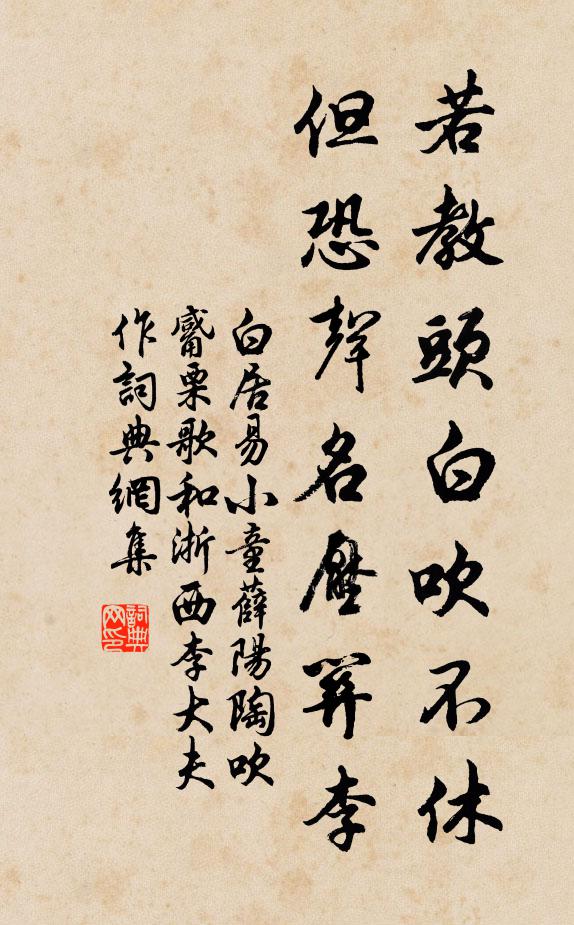 若教頭白吹不休
但恐聲名壓關李
白居易小童薛陽陶吹
觱栗歌和浙西李大夫
作詞典網集
詞典
网印